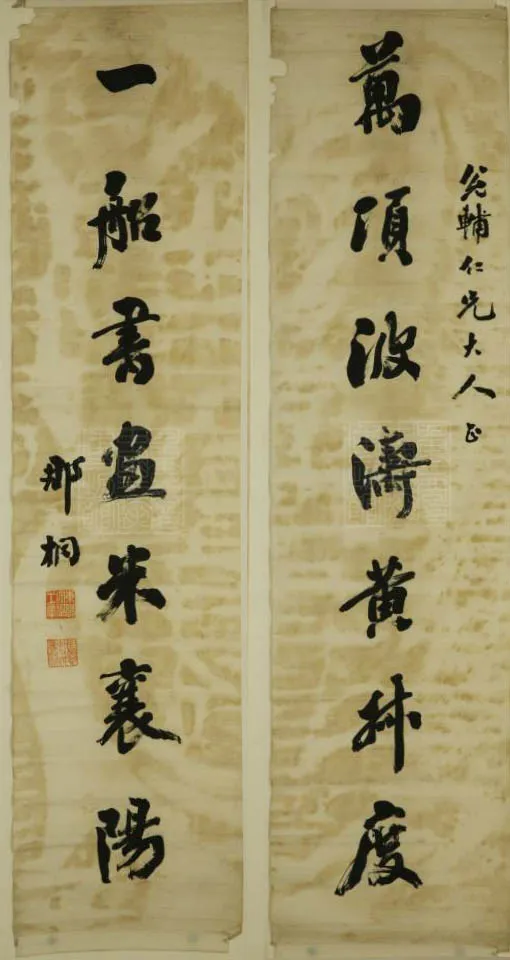 公輔仁兄大人正
萬頃波濤黃叔度
一船書畫米襄陽
那桐